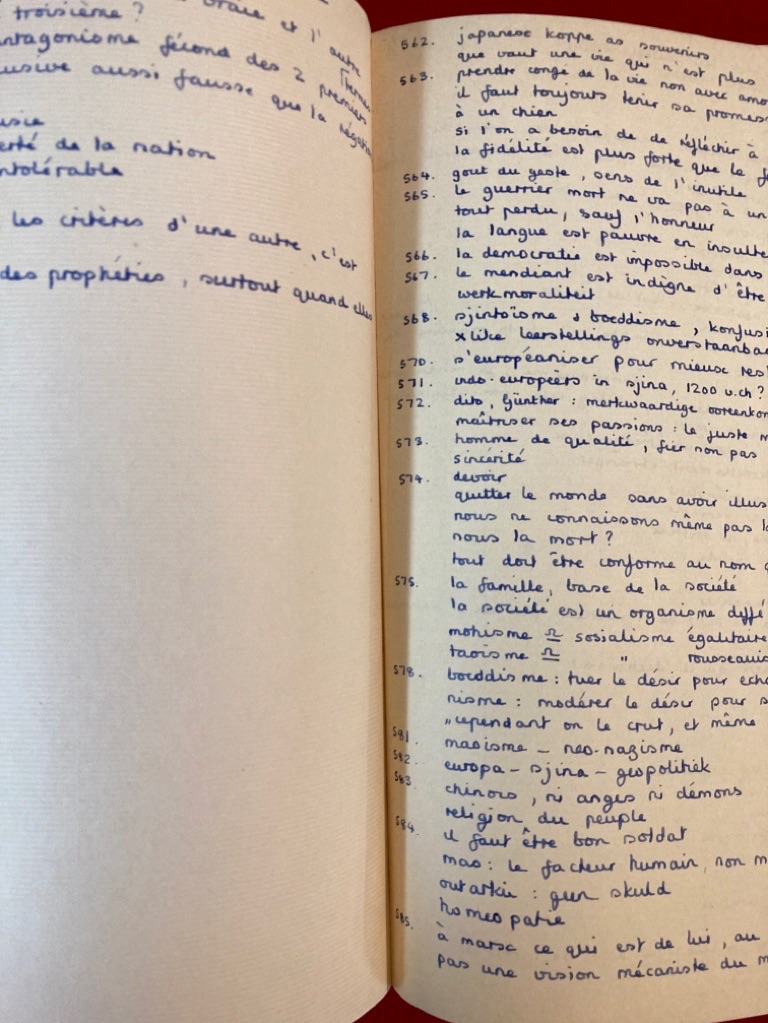 troisième ? vraie et l'autre
ntagonisme fécond des 2 premiers
usive aussi fausse que la négation
usie
erté de la nation
ntolérable
les critères d'une autre, c'est
des prophéties, surtout quand elles
562. japanese koppe as souvenirs
que vaut une vie qui n'est plus
563. prendre congé de la vie non avec amo
il faut toujours tenir sa promes
à un chien
si l'on a besoin de de réfléchir à
la fidélité est plus forte que le f
564. gout du geste, sens de l'inutile
565. le guerrier mort ne va pas à un
tout perdu, sauf l'honneur
la langue est pauvre en insulte
566. la democratie est impossible dans
567. le mendiant est indigne d'être
werkmoraliteit
568. sjintoïsme & boeddisme, konfusi
xlike leerstellings onverstaanbaa
570. s'européaniser pour mieux res
571. indo-europeërs in sjina, 1200 v.ch ?
572. dito, Günther : merkwaardige ooreenkom
maîtriser ses passions : le juste m
573. homme de qualité, fier non pas
sincérité
574. devoir
quitter le monde sans avoir illus
nous ne connaissons même pas la
nous la mort ?
tout doit être conforme au nom q
575. la famille, base de la société
la société est un organisme diffé
mohisme ≏ sosialisme égalitaire
taoïsme ≏ " rousseauis
578. boeddisme : tuer le désir pour écha
nisme : modérer le désir pour s
"cependant on le crut, et même
581. maoisme – neo-nazisme
582. europa – sjina – geopolitiek
583. chinois, ni anges ni démons
religion du peuple
584. il faut être bon soldat
mao : le facteur humain, non m
outarkie : geen skuld
homeopatie
585. à marx ce qui est de lui, au
pas une vision mécaniste du m